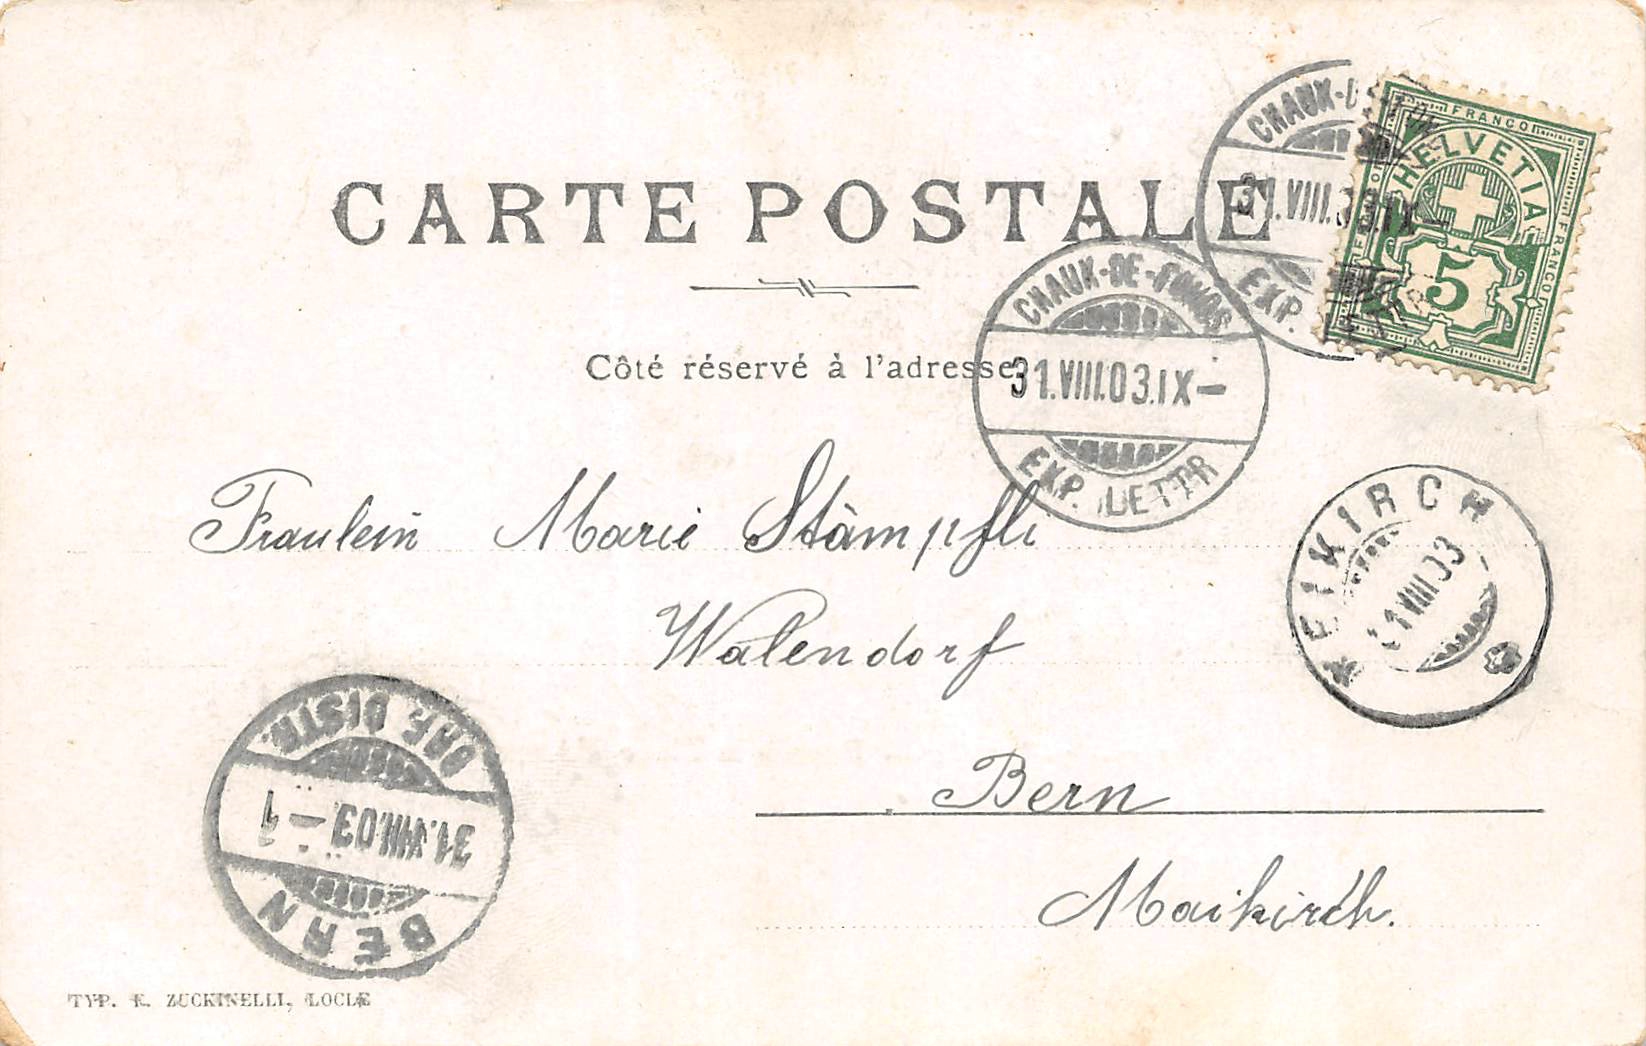 CARTE POSTALE
Côté réservé à l'adresse
CHAUX-DE-FONDS
31.VIII.03.IX-
EXP. LETTR
CHAUX-DE
31.VIII.03.IX-
EXP. LETTR
FRANCO
HELVETIA
FRANCO
FRANCO
5
Fraulein Marie Stämpfli
Walendorf
Bern
Maikirch.
KIRCH
1 VIII 03
BERN
31.VIII.03-1
DISTR.
TYP. E. ZUCKINELLI, LOCLE